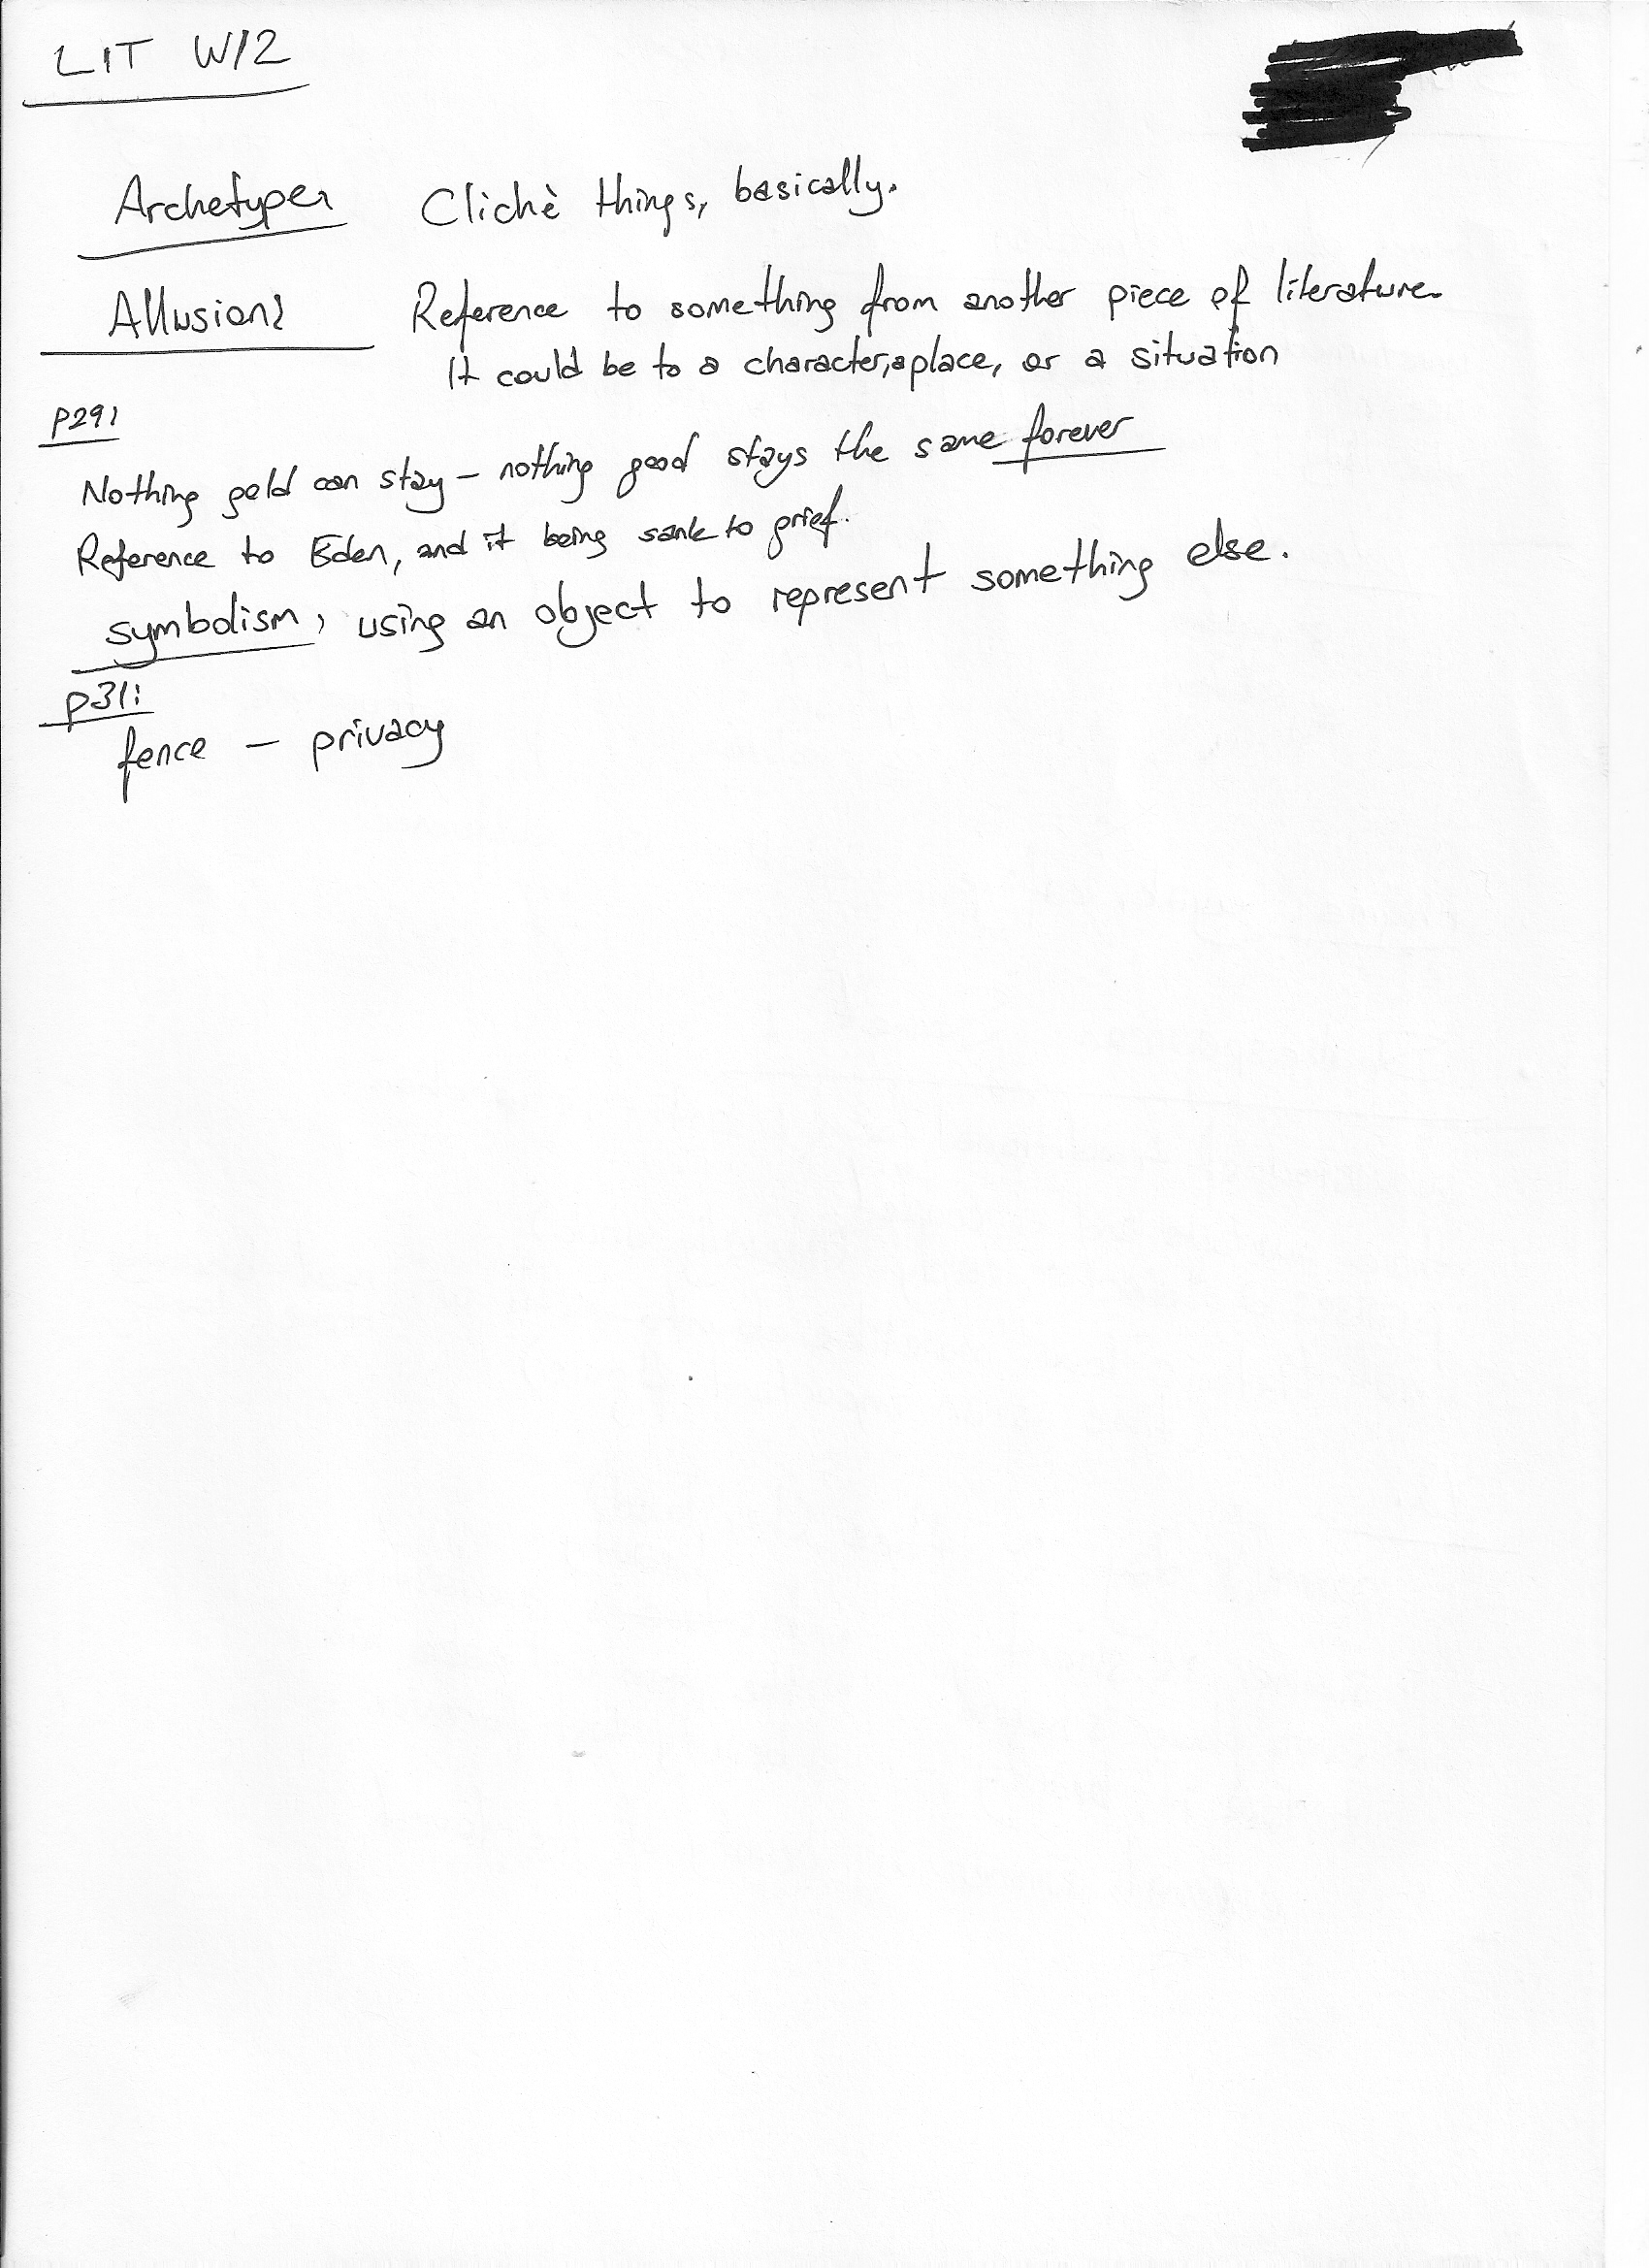 LIT W/2
Archetype: Clichè things, basically.
Allusion: Reference to something from another piece of literature.
It could be to a character, a place, or a situation
p29:
Nothing gold can stay – nothing good stays the same forever
Reference to Eden, and it being sank to grief.
symbolism: using an object to represent something else.
p31:
fence – privacy